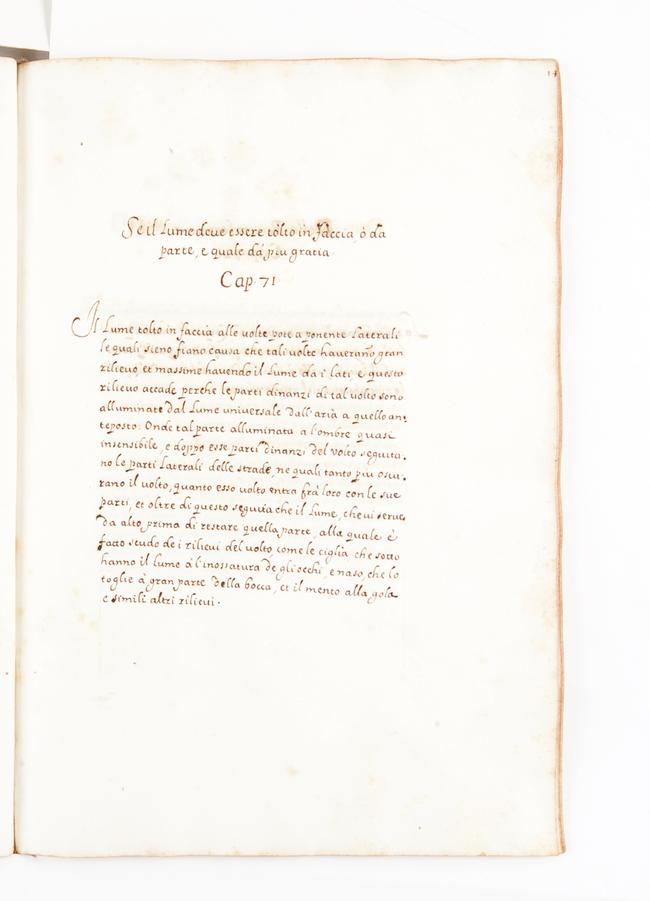 Se il Lume deve essere tolto in faccia, ò da
parte, e quale dá piu gratia
Cap. 71
Il Lume tolto in faccia alle volte pote a ponente Laterali
le quali sieno fiano causa che tali volte haverano gran
rilievo et massime havendo il Lume da i lati, e questo
rilievo accade perche le parti dinanzi di tal volto sono
alluminate dal Lume universale dall'aria a quello an,
teposto: Onde tal parte alluminata a l'ombre quasi
insensibile, e doppo esse parti dinanzi del volto seguita,
no le parti Laterali delle strade, ne quali tanto piu oscu,
rano il volto, quanto esso volto entra frà loro con le sue
parti, et oltre di questo seguvia che il Lume, che vi serve
da alto, prima di restare quella parte, alla quale è
fatto scudo de i rilievi del volto come le ciglia che sotto
hanno il Lume à l'inossatura de gli occhi, e naso, che lo
toglie à gran parte della bocca, et il mento alla gola
e simili altri rilievi.